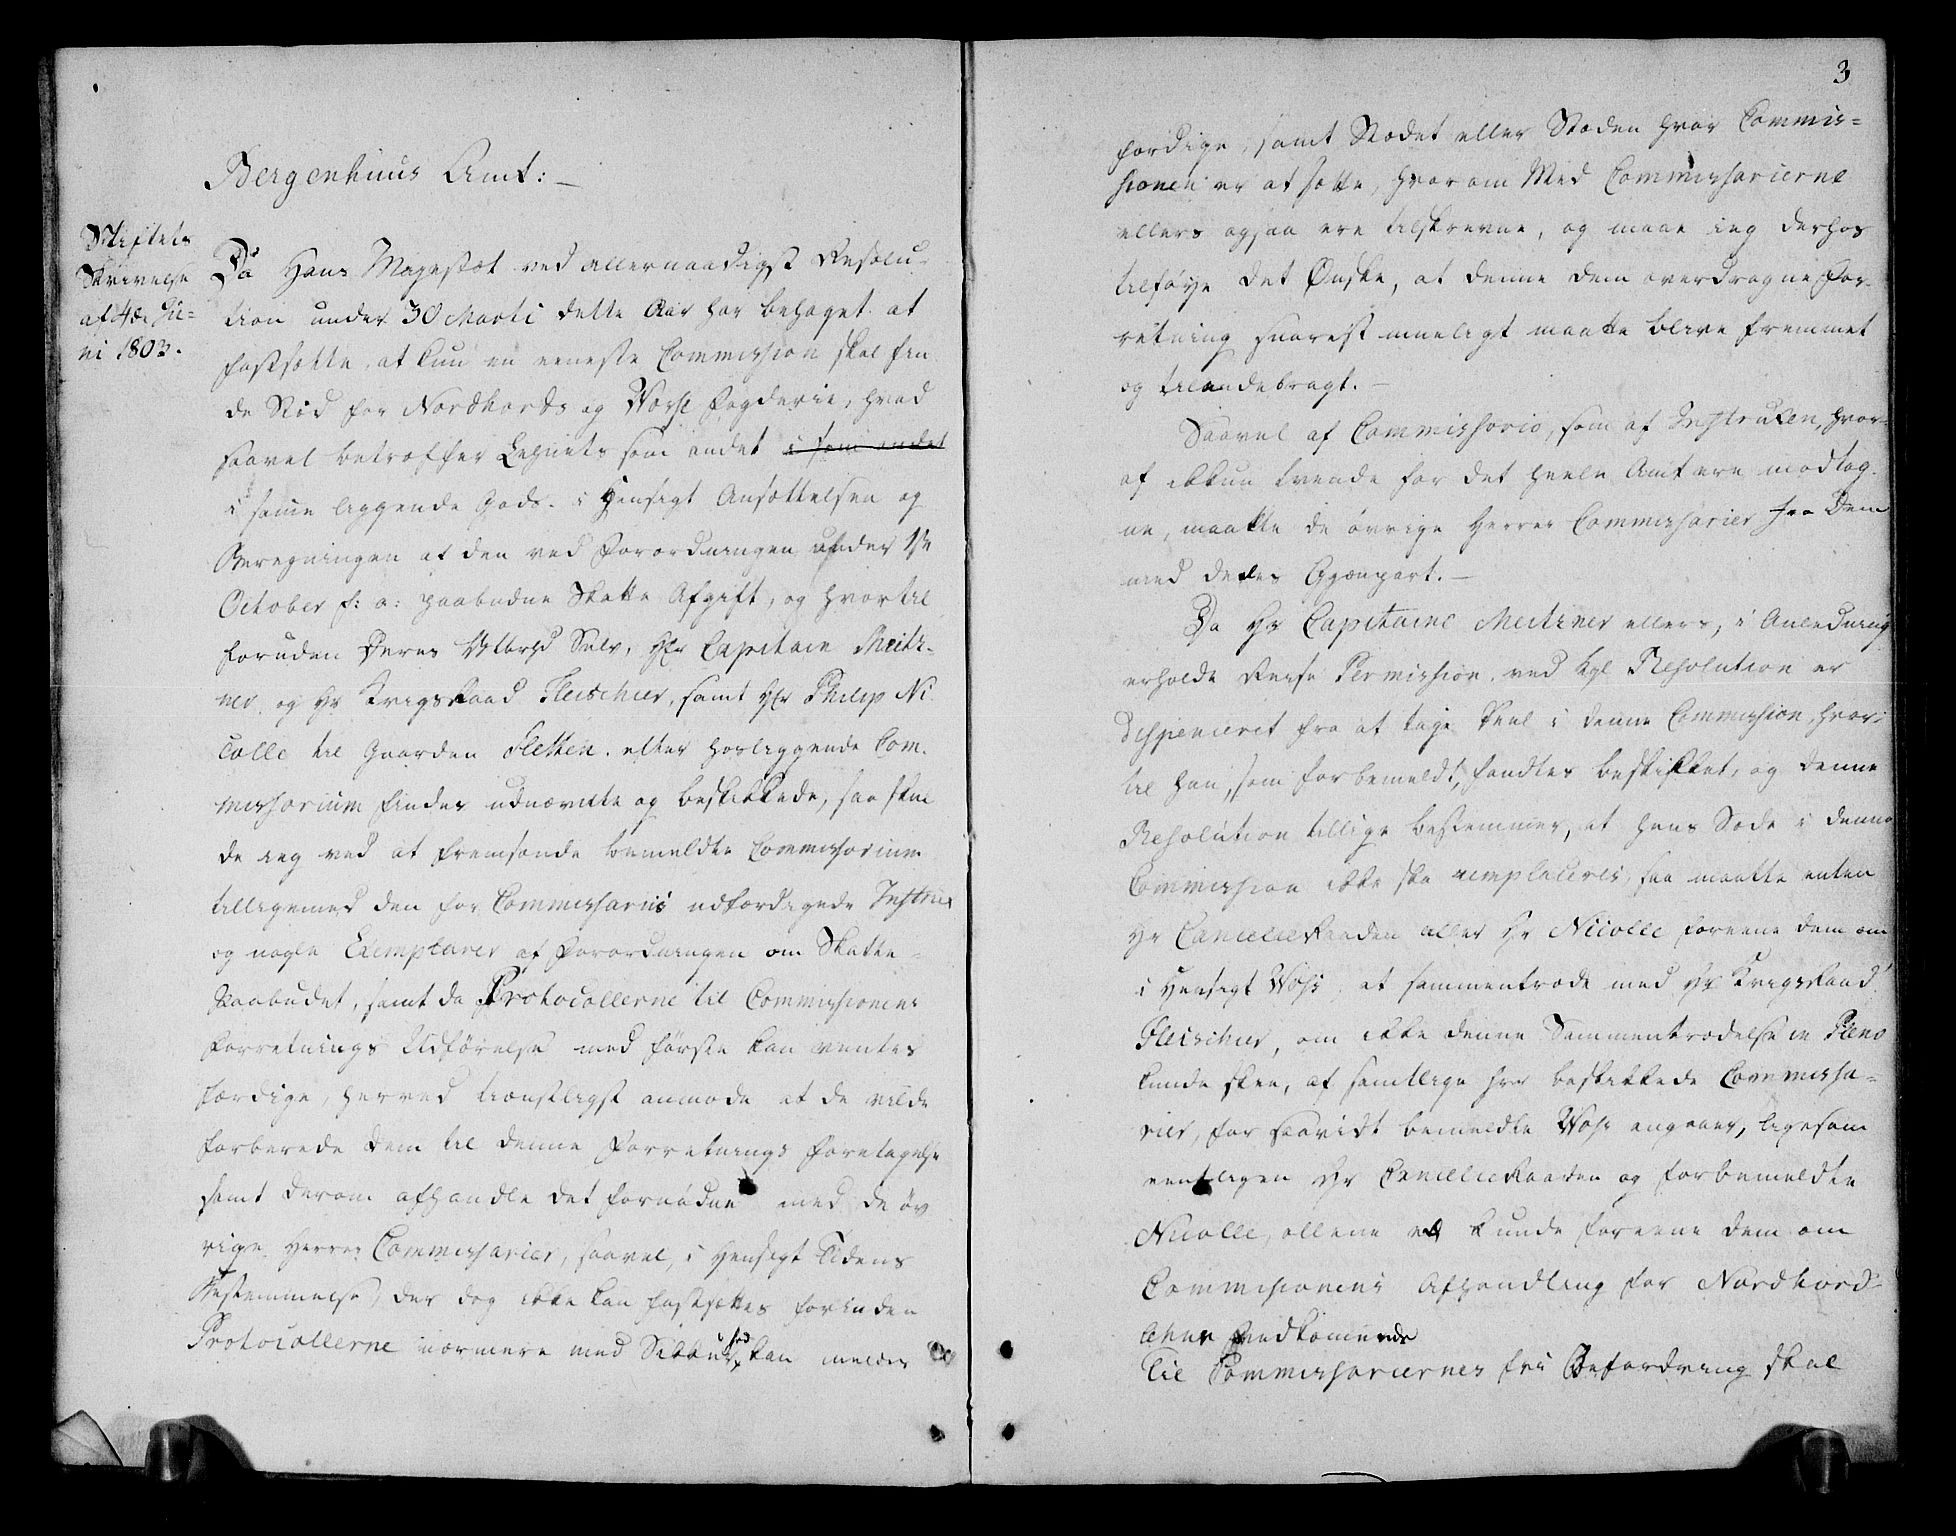 Bergenhuus Amt: —
Stiftets
Skrivelse
af 4de Ju=
ni 1803.
Da Hans Majestæt ved allernaadigst Resolu-
tion under 30 Marti dette Aar har behaget at
fastsætte, at kun en eeneste Commission skal fin
de Sted for Nordhords og Vosse Fogderie, hvad
saavel betræffer Lehnets som andet i som andet
i samme liggende Gods. i Hensigt Ansættelsen og
Beregningen af den ved Forordningen under 1ste
October f: a: paabudne Skatte Afgift, og hvortil
foruden Deres Selv, Hr Capitain Meitz-
ner og Hr Krigsraad Fleischer, samt Hr Philip Ni
colle til Gaarden Sletten. efter hosliggende Com-
missarium findes udnævnte og beskikkede, saa skul
de ieg ved at fremsende bemeldte Commissorium
tilligemed den for Commissariis udfærdigede Instrux
og nogle Exemplarer af Forordningen om Skatte-
Paabudet, samt da Protocollerne til Commissionens
Forretnings Udførelse med første kan ventes
færdige, herved tienstligst anmode at de vilde
forberede dem til denne Forretnings Foretagelse
samt derom afhandle det fornødne med de øv
rige Herrer Commissarier, saavel, i Hensigt Tidens
Bestemmelse, der dog ikke kan fastsættes forinden
Protocollerne nærmere med Sikkerhed kan meldes
3
færdige, samt Stædet eller Stæden hvor Commis=
sionen er at sætte, hvorom Med Commissarierne
ellers ogsaa ere tilskrevne, og maae ieg derhos
tilføye det Ønske, at denne dem overdragne For-
retning snarest mueligt maatte blive fremmet
og tilendebragt. —
Saavel af Commissorio, som af Instruxen, hvor-
af ikkun tvende for det heele Amt ere modtag-
ne, maatte de øvrige Herrer Commissarier fra Dem
med deeles Gjenpart. —
Da Hr Capitaine Meitzner ellers, i Anledning
erholdt Reise Permission, ved kgl Resolution er
dispenceret fra at tage Deel i denne Commission, hvor-
til han, som forbemeldt, fandtes beskikket, og denne
Resolution tillige bestemmer, at hans Sæde i denne
Commission ikke skal remplaceres, saa maatte enten
Hr CancelieRaaden eller Hr Nicolle foreene dem om
i Hensigt Voss, at sammentræde med Hr KrigsRaad
Fleischer, om ikke denne Sammentrædelse in Pleno
kunde skee, af samtlige her beskikkede Commissa=
rier, for saavidt bemeldte Voss angaaer, ligesom
eentligen Hr CancelieRaaden og forbemeldte
Nicolle, allene kunde foreene dem om
Commissionens Afhandling for Nordhord-
lehns Vedkomende
Til Commissariernes frie Befordring skal